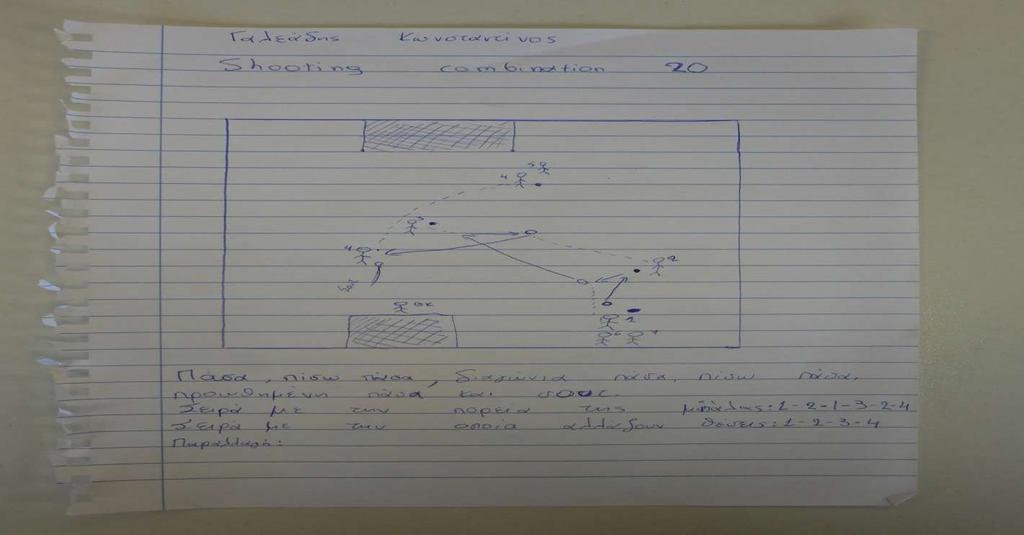 Γαλεάδης Κωνσταντίνος
Shooting combination 20
5
4
3
4
2
GK
1
6 7
Πάσα, πίσω πάσα, διαγώνια πάσα, πίσω πάσα,
προωθημένη πάσα και σουτ.
Σειρά με την πορεία της μπάλας: 1-2-1-3-2-4
Σειρά με την οποία αλλάζουν θέσεις: 1-2-3-4
Παραλλαγή: